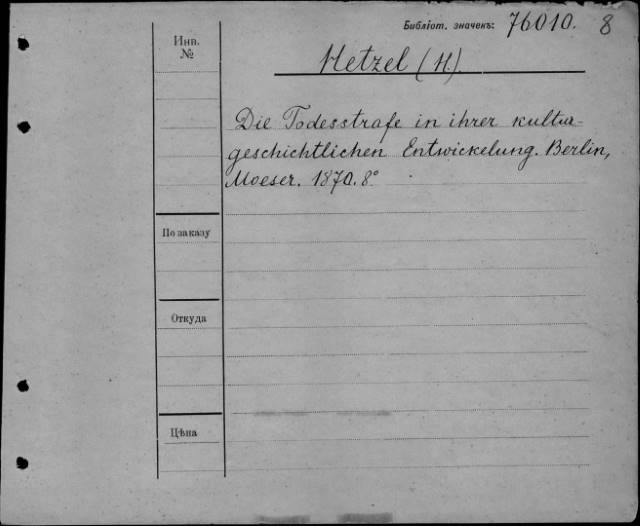 Библіот. значекъ: 76010. 8
Инв.
№
Hetzel (H).
Die Todesstrafe in ihrer kultur-
geschichtlichen Entwickelung. Berlin,
Moeser. 1870. 8°
По заказу
Откуда
Цѣна